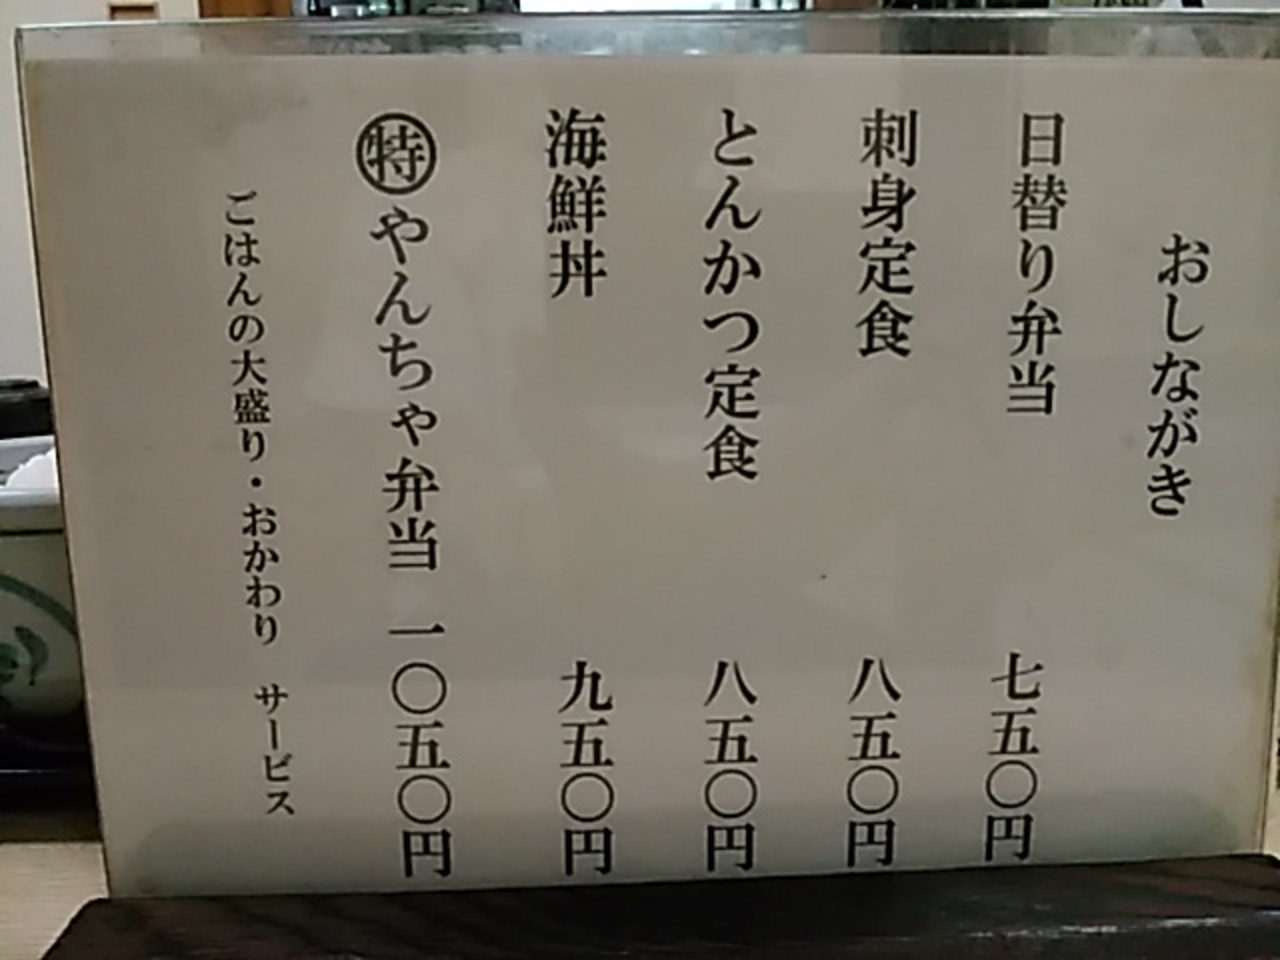 おしながき
日替り弁当 七五〇円
刺身定食 八五〇円
とんかつ定食 八五〇円
海鮮丼 九五〇円
㊕やんちゃ弁当 一〇五〇円
ごはんの大盛り・おかわり サービス